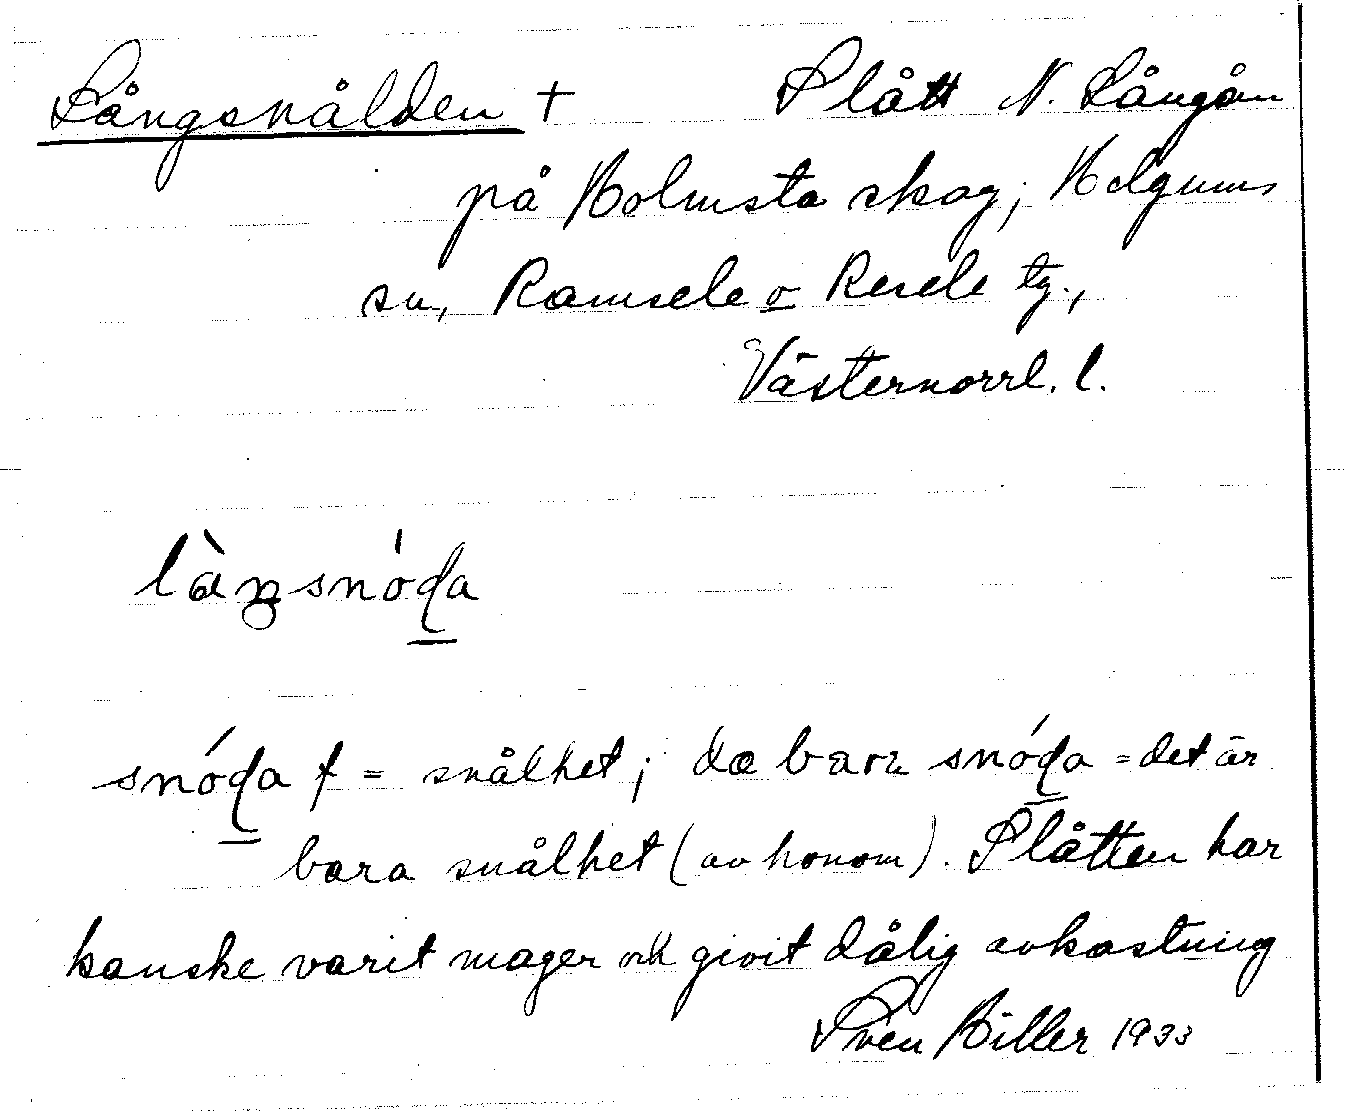 Långsnålden + Slått N. Långån
på Holmsta skog, Helgums
sn, Ramsele o Resele tg.,
Västernorrl. l.
snóɖa f = snålhet; dæ bara snóɖa = det är
bara snålhet (av honom). Slåtten har
kanske varit mager och givit dålig avkastning
Sven Hiller 1933